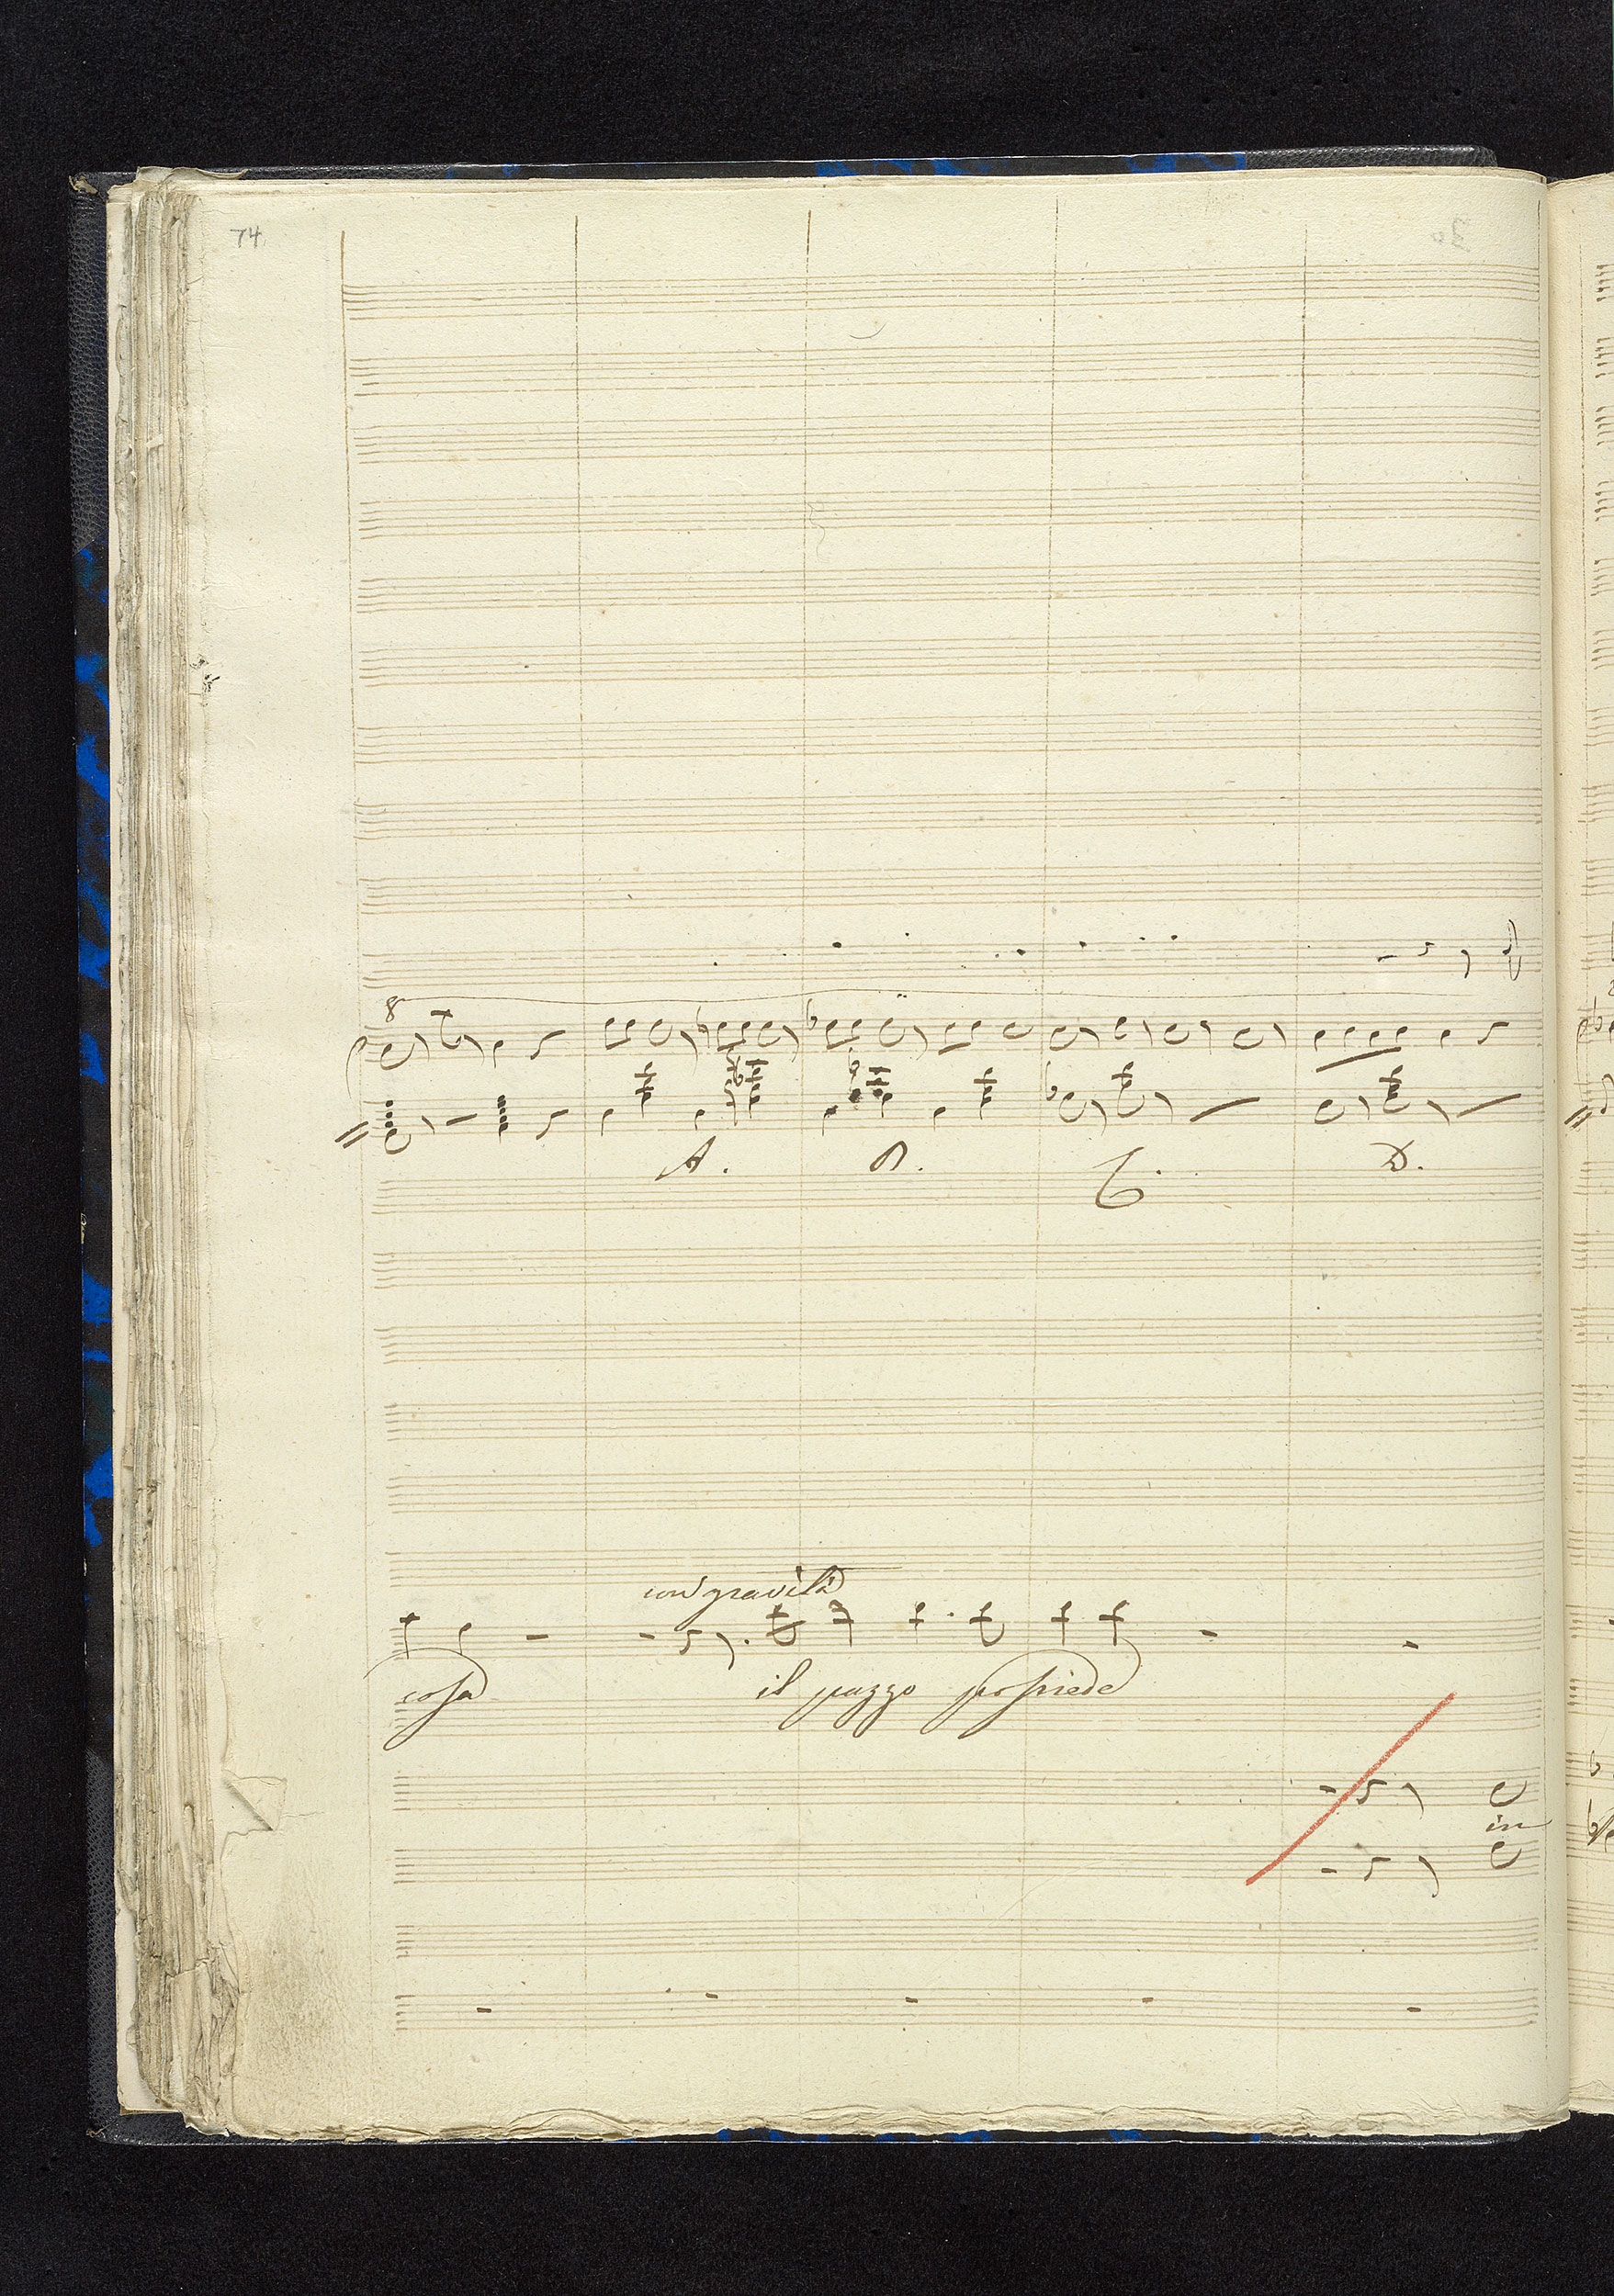 74
8
A. B. C. D.
con gravità
cosa il pazzo possiede
in